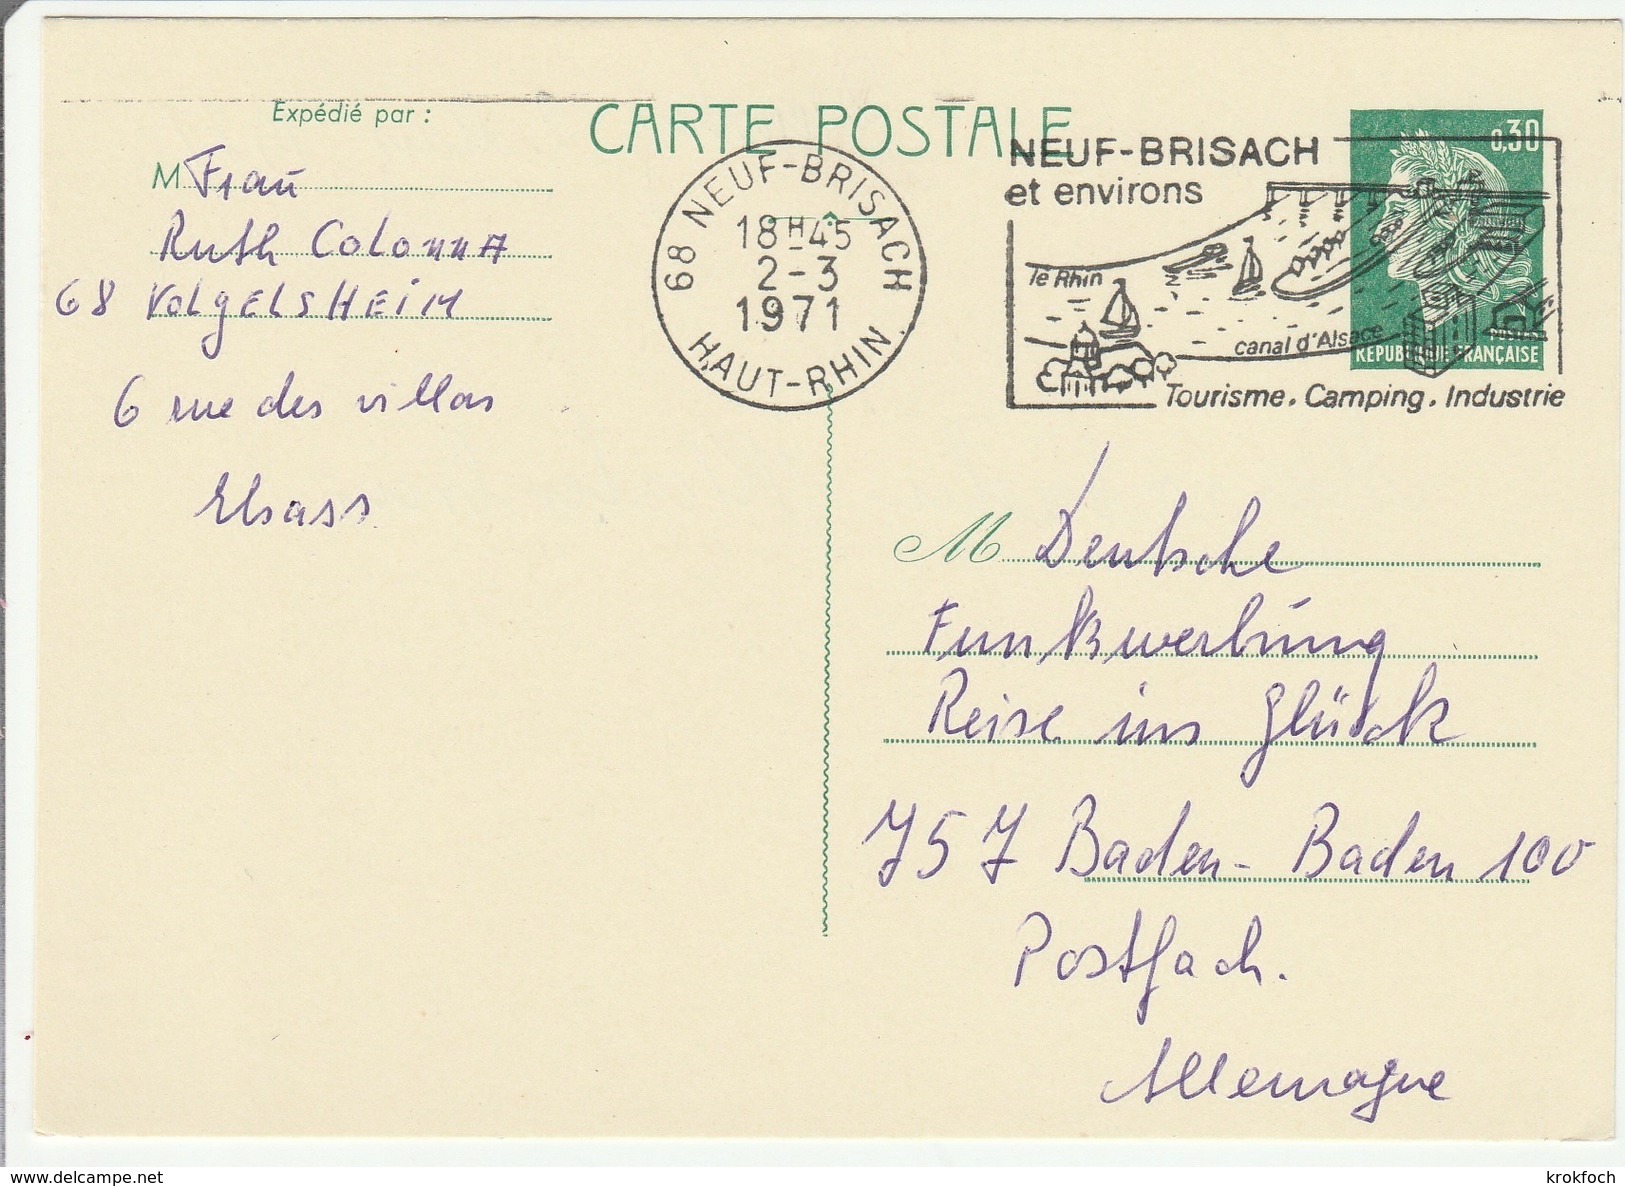 Expédié par :
CARTE POSTALE
0,30
NEUF-BRISACH
et environs
le Rhin
canal d'Alsace
Tourisme. Camping. Industrie
POSTES
REPUBLIQUE FRANÇAISE
68 NEUF-BRISACH
18H45
2-3
1971
HAUT-RHIN
M Frau
Ruth Colonna
68 VOLGELSHEIM
6 rue des villas
Elsass
M Deutsche
Funkwerbung
Reise ins Glück
757 Baden-Baden 100
Postfach.
Allemagne
delcampe.net
krokfoch